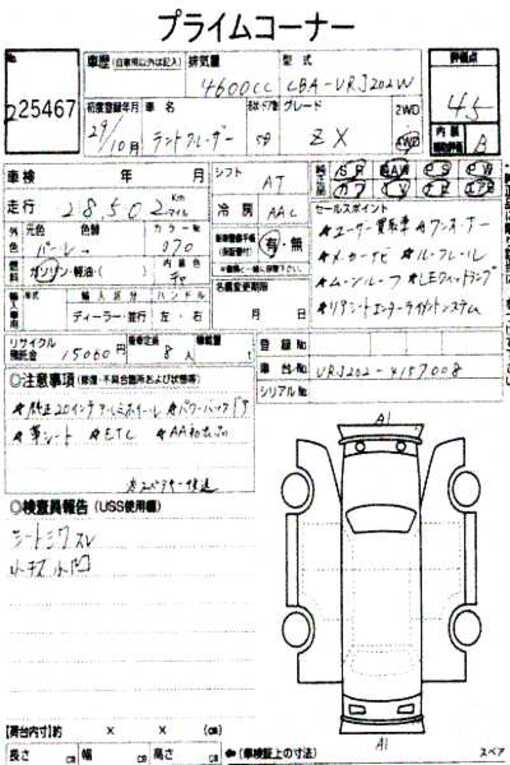 プライムコーナー
No.
225467
車歴 (自家用以外は記入)
排気量
4600cc
型式
CBA-VRJ202W
評価点
45
初度登録年月
29/10月
車名
ランドクルーザー
5D
グレード
ZX
2WD
4WD
内装
B
車検 年 月
走行 28,502 Km
マイル
シフト
AT
冷房
AAC
SR AW PS PW
カワ TV ナビ エアB
外色
元色
パール
色替
カラーNo
070
有・無
燃料
ガソリン・軽油・( )
内装色
名義変更期限
月 日
セールスポイント
★ユーザー買取車 ★ワンオーナー
★メーカーナビ ★ルーフレール
★ムーンルーフ ★LEDヘッドランプ
★リアシートエンターテイメントシステム
輸入車用
年式
輸入区分
ディーラー・並行
ハンドル
左・右
リサイクル預託金
15060円
乗車定員
8人
積載量
t
登録No
車台No
VRJ202-4157008
シリアルNo
◎注意事項 (修復・不具合箇所および状態等)
★純正20インチアルミホイール ★パワーバックドア
★革シート ★ETC ★AA初出品
◎検査員報告 (USS使用欄)
シートシワスレ
小キズ小凹
A1
A1
【荷台内寸】約 × × (cm)
長さ cm 幅 cm 高さ cm
←(車検証上の寸法)
スペア